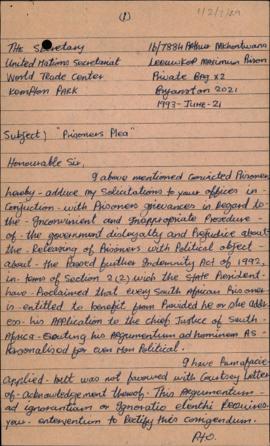 (1)
The Secretary
16/7834 Arthur Mkhontwana
United Nations Secretariat
Leeuwkop Maximum Prison
World Trade Center
Private Bag x2
Kempton Park
Bryanston 2021
1993-June-21
Subject) "Prisoners Plea"
Honourable Sir,
I above mentioned Convicted Prisoner
hereby - adduce my Solicitations to your offices in -
Conjuction - with Prisoners grievances in Regard to
the - Inconvinient and Inappropriate Procedure -
of - the government disloyalty and Prejudice about
the Releasing of Prisoners with Political object -
about - the Passed further Indemnity Act of 1992,
in - terms of Section 2(2) wich the State President -
have - Proclaimed that every South African Prisoner
is entitled to benefit from Provided he or she Addr-
ess - his Application to the Chief Justice of South -
Africa - his Argumentum ad hominem As -
Personalised for even Non Political.
I have Primafacie
Applied - but was not favoured with Courtsey Letter
of - Acknowledgement thereof. This Argumentum -
ad ignorantium or Ignoratio elenchi Requires -
your - intervention to Rectify this corrigendum.
P.T.O.